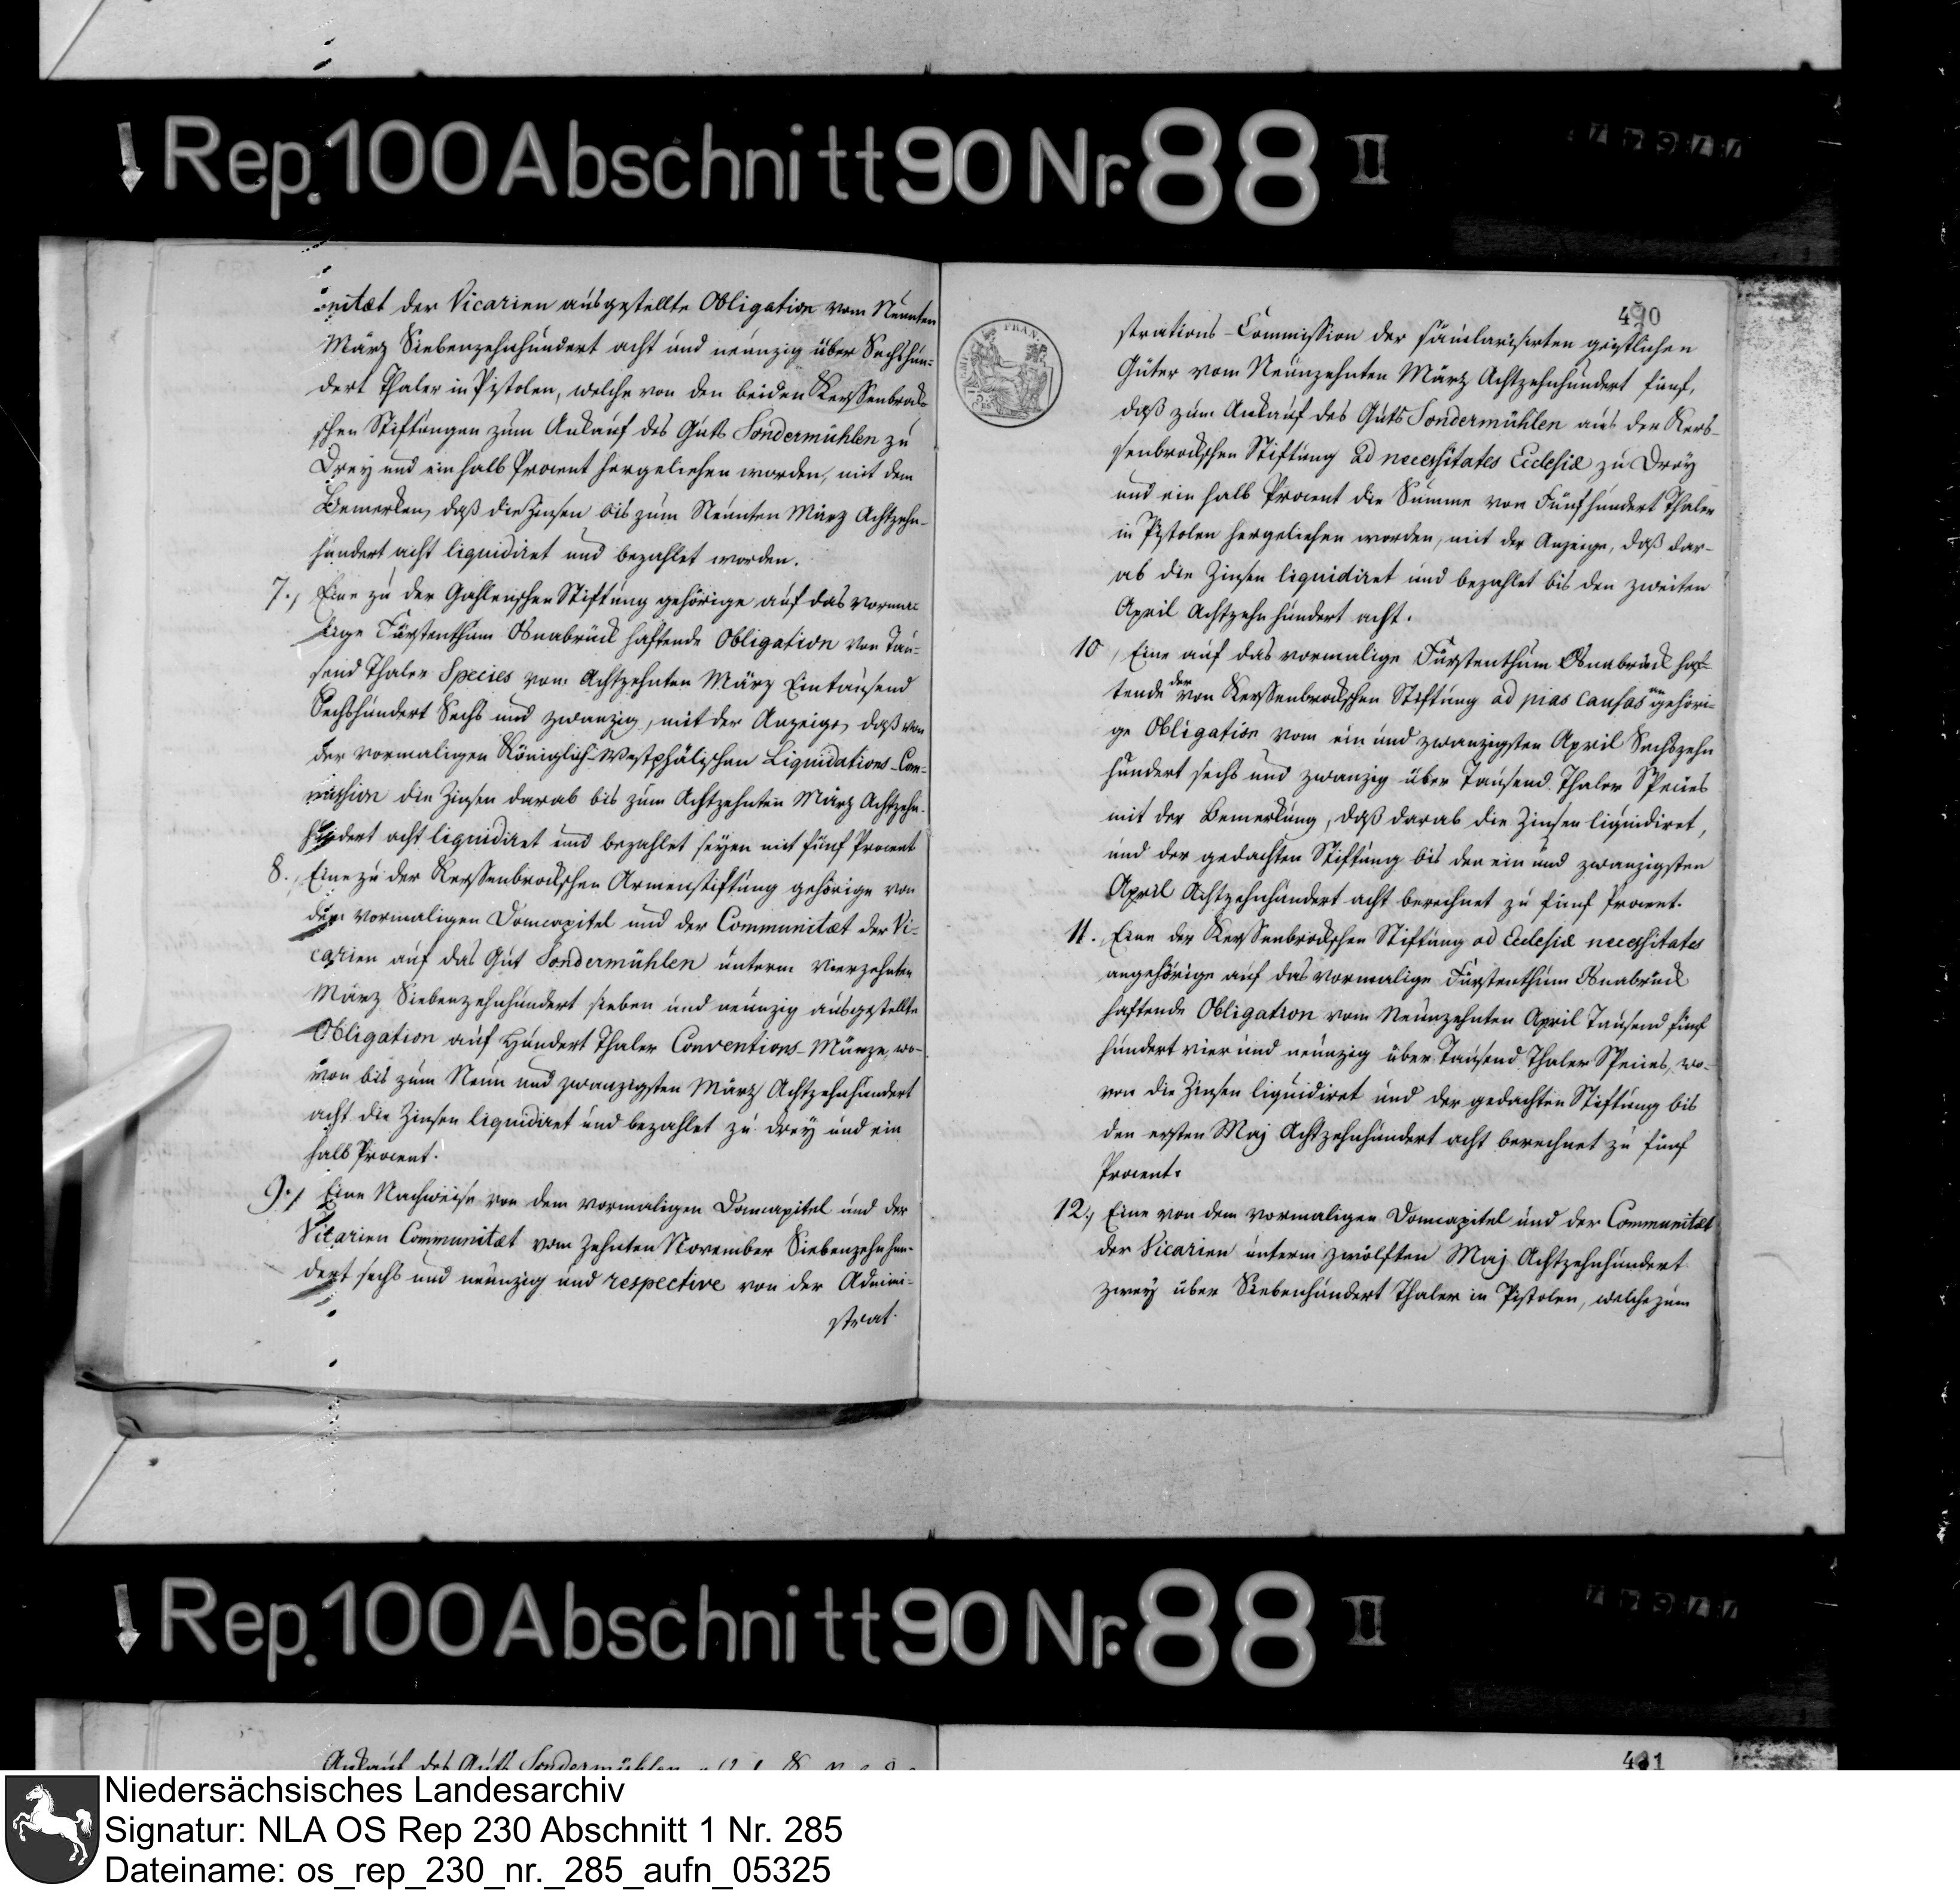 Rep. 100 Abschnitt 90 Nr. 88 II
nitæt der Vicarien ausgestellte Obligation vom Neunten
März Siebenzehnhundert acht und neunzig über Sechshun-
dert Thaler in Pistolen, welche von den beiden Kerssenbrock-
schen Stiftungen zum Ankauf des Guts Sondermühlen zu
Drey und ein halb Procent hergeliehen worden, mit dem
Bemerken, daß die Zinsen bis zum Neunten März Achtzehn-
hundert acht liquidiret und bezahlet worden.
7., Eine zu der Gahlenschen Stiftung gehörige auf das vorma-
lige Fürstenthum Osnabrück haftende Obligation von Tau-
send Thaler Species vom Achtzehnten März Eintausend
Sechshundert Sechs und zwanzig, mit der Anzeige, daß von
der vormaligen Königlich-Westphälischen Liquidations-Com-
mission die Zinsen darab bis zum Achtzehnten März Achtzehn-
hundert acht liquidiret und bezahlet seyen mit fünf Procent
8., Eine zu der Kerssenbrockschen Armenstiftung gehörige von
dem vormaligen Domcapitel und der Communitæt der Vi-
carien auf das Gut Sondermühlen unterm Vierzehnten
März Siebenzehnhundert sieben und neunzig ausgestellte
Obligation auf Hundert Thaler Conventions-Münze, wo-
von bis zum Neun und zwanzigsten März Achtzehnhundert
acht die Zinsen liquidiret und bezahlet zu drey und ein
halb Procent.
9., Eine Nachweise von dem vormaligen Domcapitel und der
Vicarien Communitæt vom Zehnten November Siebenzehnhun-
dert sechs und neunzig und respective von der Admini-
strat.
490
FRAN
strations-Commission der säcularisirten geistlichen
Güter vom Neunzehnten März Achtzehnhundert fünf,
daß zum Ankauf des Guts Sondermühlen aus der Kers-
senbrockschen Stiftung ad necessitates Ecclesiæ zu Drey
und ein halb Procent die Summe von Fünfhundert Thaler
in Pistolen hergeliehen worden, mit der Anzeige, daß dar-
ab die Zinsen liquidiret und bezahlet bis den zweiten
April Achtzehnhundert acht.
10, Eine auf das vormalige Fürstenthum Osnabrück haf-
tende der von Kerssenbrockschen Stiftung ad pias causas angehöri-
ge Obligation vom ein und zwanzigsten April Sechszehn
hundert sechs und zwanzig über Tausend Thaler Species
mit der Bemerkung, daß darab die Zinsen liquidiret,
und der gedachten Stiftung bis den ein und zwanzigsten
April Achtzehnhundert acht berechnet zu fünf Procent.
11. Eine der Kerssenbrockschen Stiftung ad Ecclesiæ necessitates
angehörige auf das vormalige Fürstenthum Osnabrück
haftende Obligation vom Neunzehnten April Tausend fünf
hundert vier und neunzig über Tausend Thaler Species, wo-
von die Zinsen liquidiret und der gedachten Stiftung bis
den ersten Maj Achtzehnhundert acht berechnet zu fünf
Procent.
12., Eine von dem vormaligen Domcapitel und der Communitæt
der Vicarien unterm zwölften Maj Achtzehnhundert
zwey über Siebenhundert Thaler in Pistolen, welche zum
Rep. 100 Abschnitt 90 Nr. 88 II
Ankauf des Guts Sondermühlen
Niedersächsisches Landesarchiv
Signatur: NLA OS Rep 230 Abschnitt 1 Nr. 285
Dateiname: os_rep_230_nr._285_aufn_05325